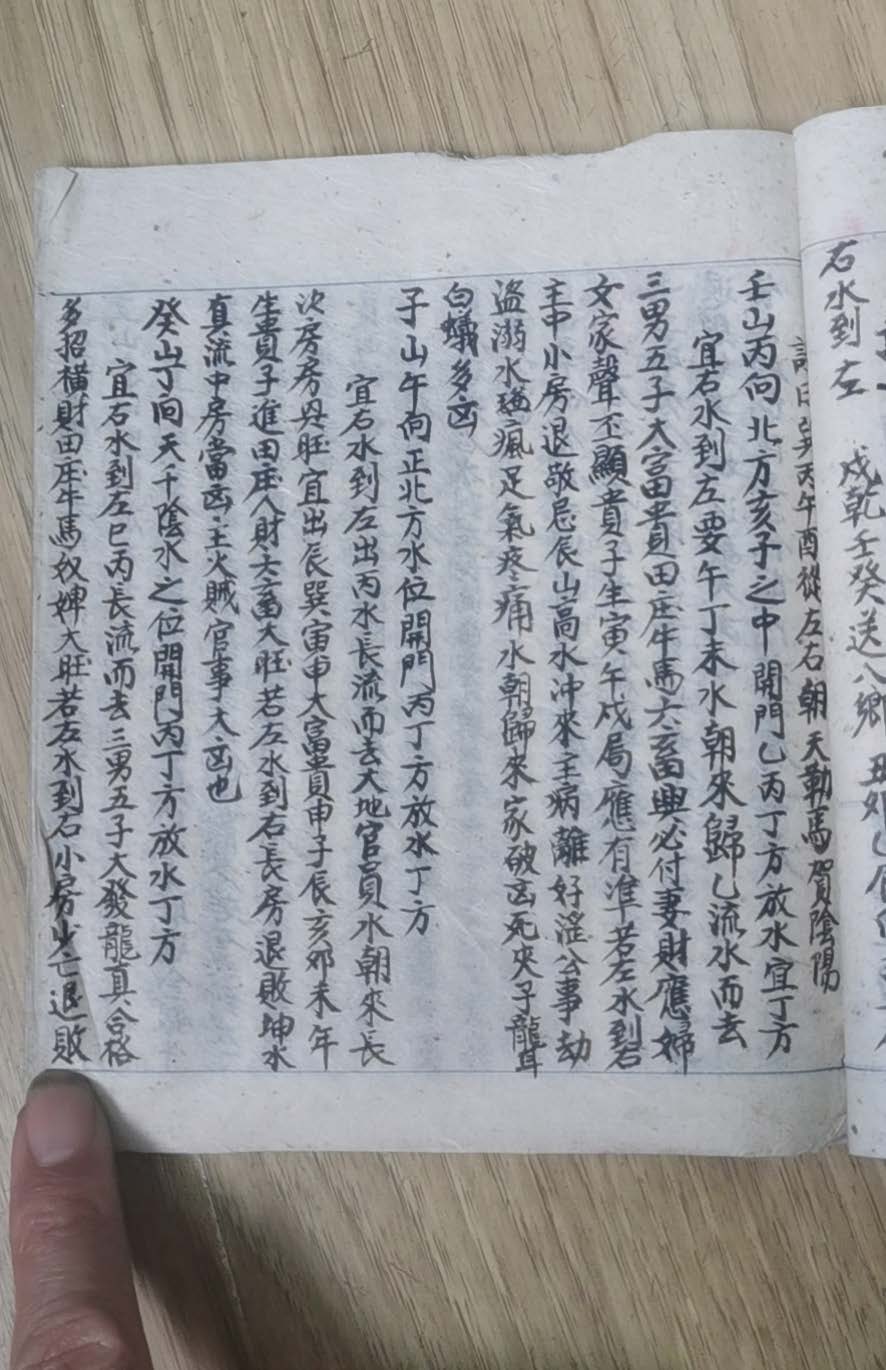 右水到左　戌乾壬癸送八鄉
丙午酉從左右朝天勒馬賀陰陽
壬山丙向北方亥子之中開門乙丙丁方放水宜丁方
宜右水到左要午丁未水朝來歸乙流水而去
三男五子大富貴田庄牛馬六畜興必付妻財應婦
女家聲丕顯貴子生寅午戌局應有準若左水到右
主中小房退敬忌辰山高水冲來主病離好淫公事劫
盜溺水瘋足氣疼痛水朝歸來家破凶死夹子龍耳
白蟻多凶
子山午向正北方水位開門丙丁方放水丁方
宜右水到左出丙水長流而去大地官貢水朝來長
次房房興旺宜出辰巽寅申大富貴申子辰亥卯未年
生貴子進田庄人財六畜大旺若左水到右長房退敗坤水
真流中房當凶主火賊官事大凶也
癸山丁向天千陰水之位開門丙丁方放水丁方
宜右水到左巳丙長流而去三男五子大發龍真合格
多招橫財田庄牛馬奴婢大旺若左水到右小房少亡退敗